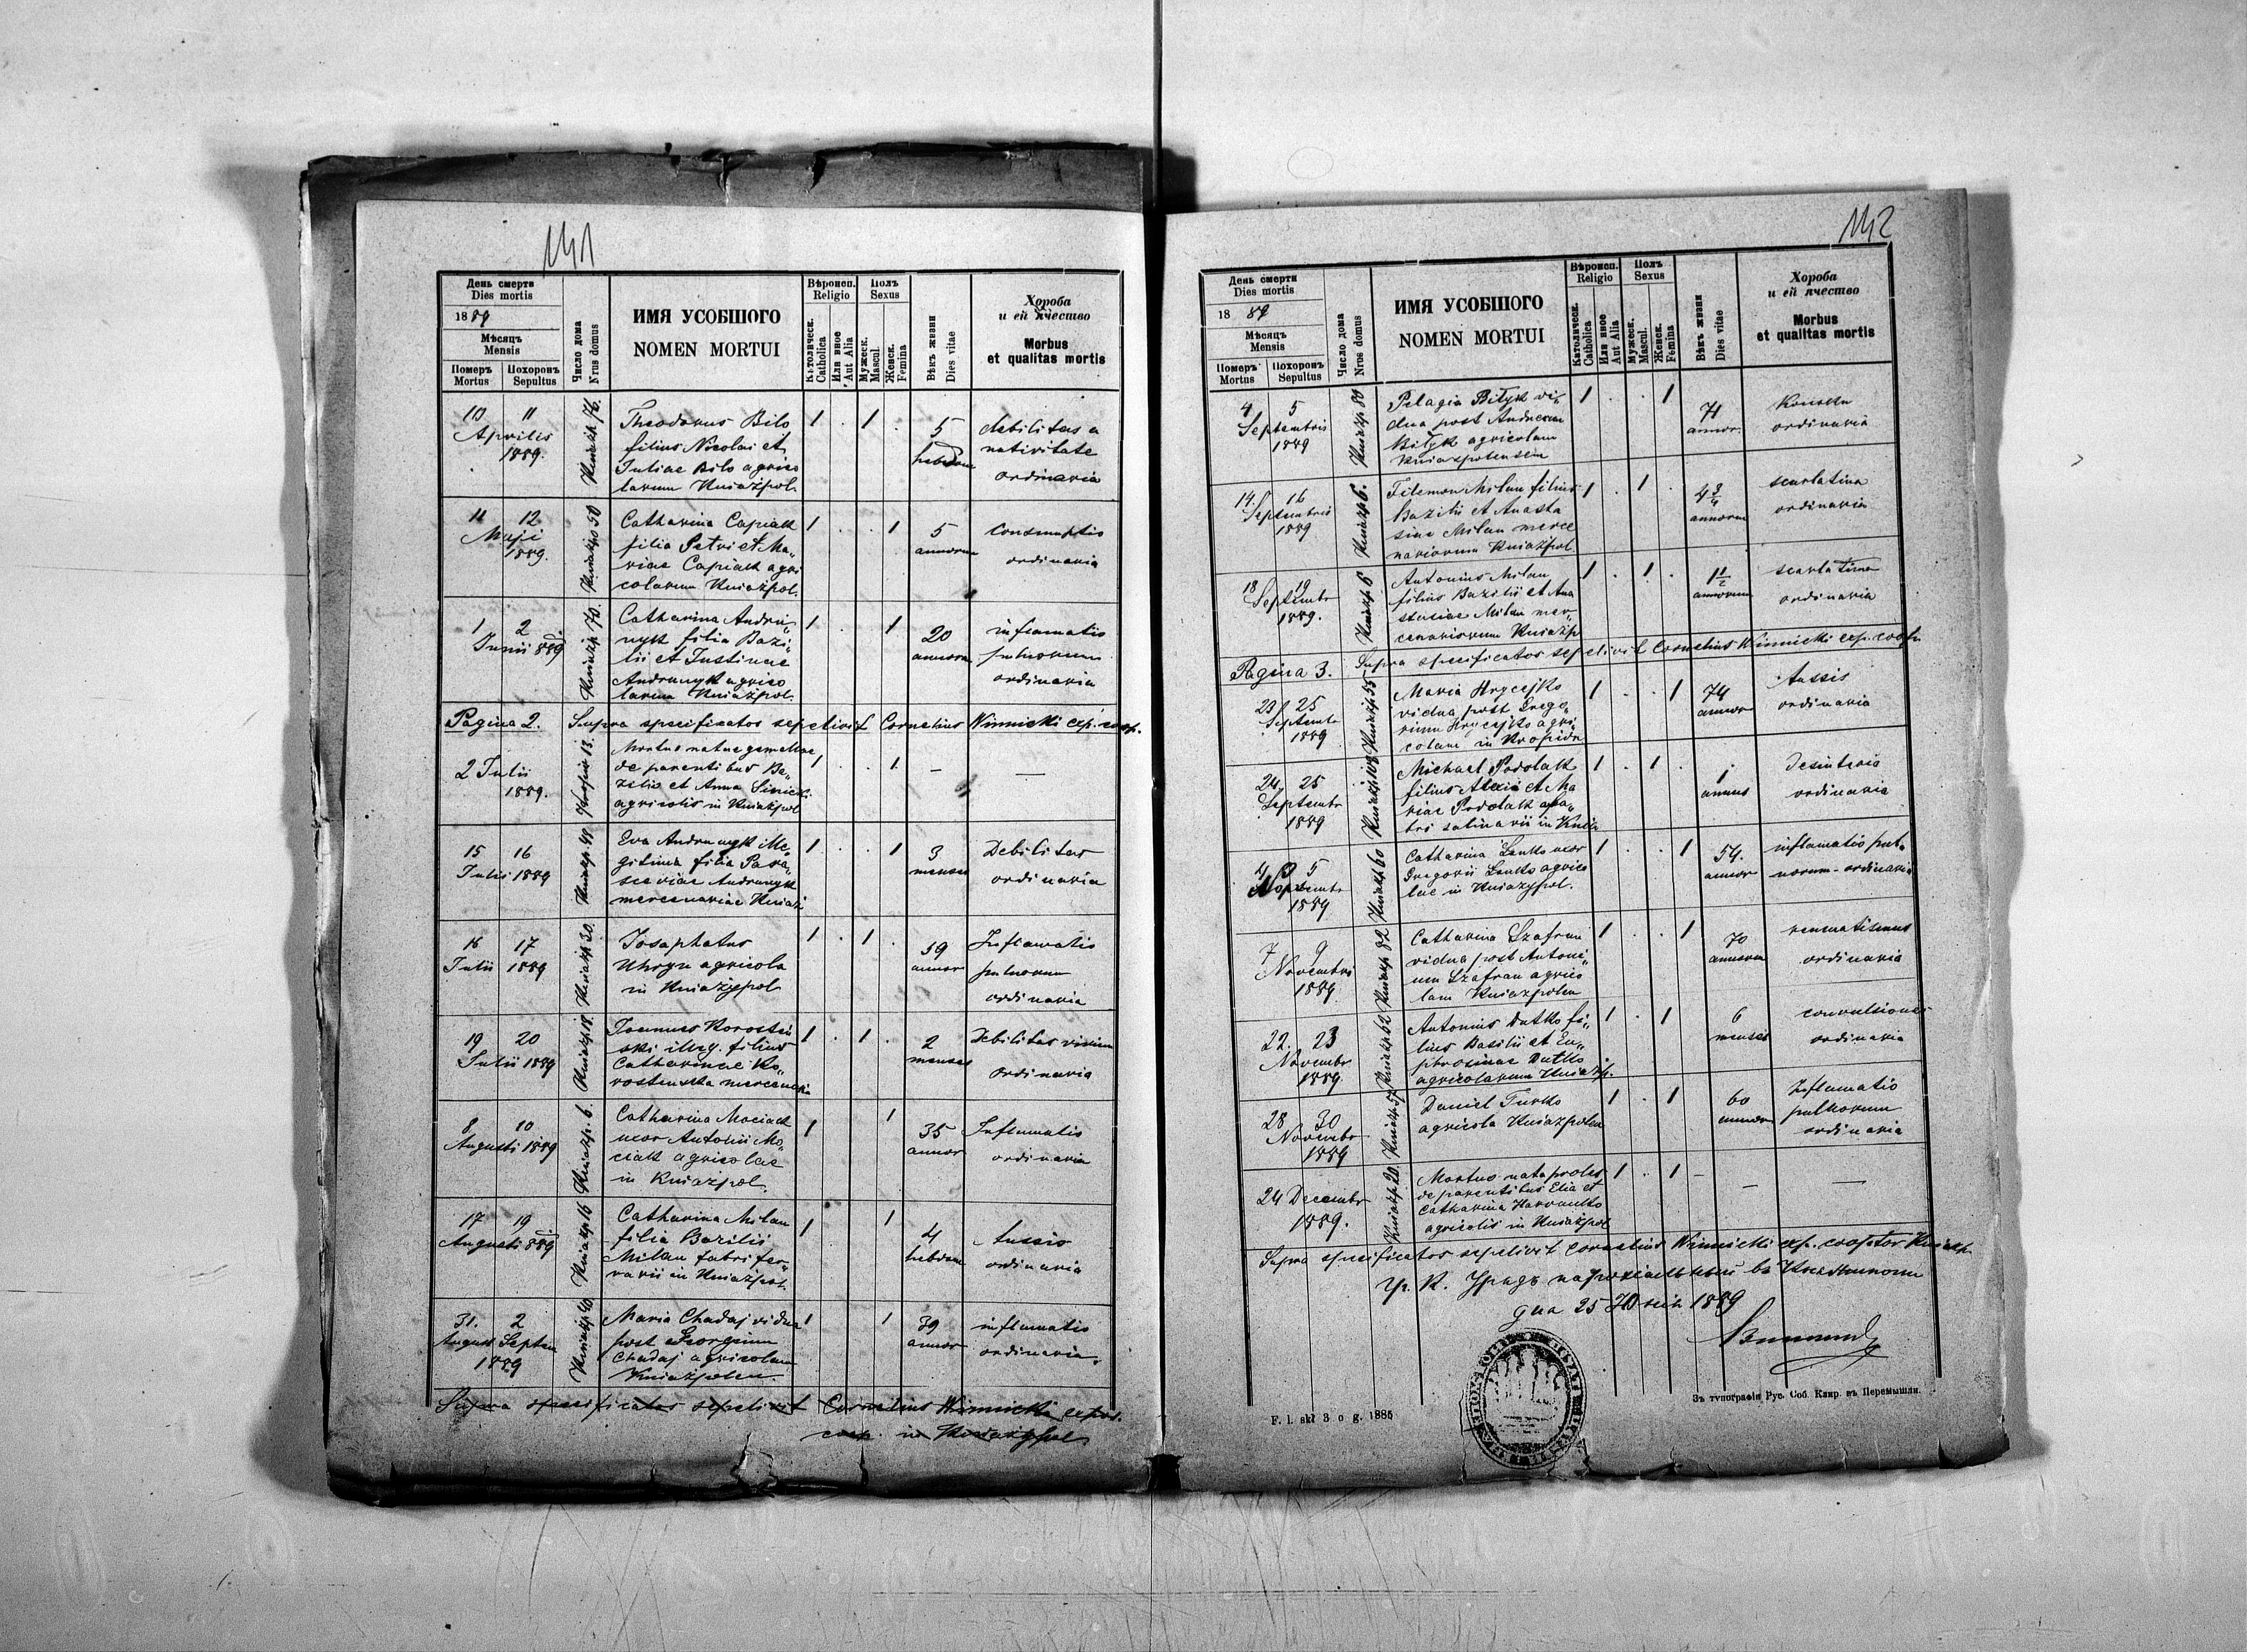 141
День смерти
Dies mortis
1889
Мѣсяць
Mensis
Померъ
Mortus
Похоронъ
Sepultus
Число дома
Nrus domus
ИМЯ УСОБШОГО
NOMEN MORTUI
Вѣроисп.
Religio
Католическ.
Catholica
Или вное
Aut Alia
Полъ
Sexus
Мужеск.
Mascul.
Женск.
Femina
Вѣкъ жизни
Dies vitae
Хороба
и ей ячество
Morbus
et qualitas mortis
10 11
Aprilis
1889.
Kniażp. 76.
Theodorus Bilo
filius Nicolai et
Juliae Bilo agrico
larum Kniażpol.
1 . 1 .
5
hebdom
debilitas a
nativitate
ordinaria
11 12
Maji
1889.
Kniażp. 50
Catharina Capiak
filia Petri et Ma„
riae Capiak agri
colarum Kniażpol.
1 . . 1
5
annorum
Consumptio
ordinaria
1 2
Junii 889
Kniażp. 70.
Catharina Andru„
nyk filia Bazi„
lii et Justinae
Andrunyk agrico
larum Kniażpol.
1 . 1
20
annorum
inflamatio
pulmorum
ordinaria
Pagina 2. Supra specificatos sepelivit Cornelius Winnicki exp. coop.
2 Julii
1889.
13.
Mortuo natae gemellae
de parentibus Ba„
zilio et Anna
agricolis in Kniażpol
1 . . 1
— —
15 16
Julii 1889
Kniażp. 48.
Eva Andrunyk ille„
gitima filia Para„
sceviae Andrunyk
mercenariae Kniaż
1 . . 1
3
menses
Debilitas
ordinaria
16 17
Julii 1889
Kniażp. 30.
Josaphatus
Uhryn agricola
in Kniażpol
1 . 1 .
59
annor
Inflamatio
pulmorum
ordinaria
19 20
Julii 1889
Kniażp. 18.
Joannes Korosteń
ski illeg. filius
Catharinae Ko„
rosteńska mercenaria
1 . 1 .
2
menses
Debilitas virium
ordinaria
8 10
Augusti 1889
Kniażp. 6.
Catharina Maciak
uxor Antonii Ma„
ciak agricolae
in Kniażpol.
1 1
35
annor
Inflamatio
ordinaria
17 19
Augusti 889
Kniażp. 16
Catharina Milan
filia Bazilii
Milan fabri fer„
rarii in Kniażpol.
1 1
4
hebdom
tussis
ordinaria
31. 2
August Septem
1889
Kniażp. 40
Maria Chadaj vidua
post Georgium
Chadaj agricolam
Kniażpolen.
1 1
39
annor
inflamatio
ordinaria.
Supra specificatos sepelivit Cornelius Winnicki expos.
coop. in Kniażpol
142
День смерти
Dies mortis
1889
Мѣсяць
Mensis
Померъ
Mortus
Похоронъ
Sepultus
Число дома
Nrus domus
ИМЯ УСОБШОГО
NOMEN MORTUI
Вѣроисп.
Religio
Католическ.
Catholica
Или вное
Aut Alia
Полъ
Sexus
Мужеск.
Mascul.
Женск.
Femina
Вѣкъ жизни
Dies vitae
Хороба
и ей ячество
Morbus
et qualitas mortis
4 5
Septembris
1889
Kniażp.
Pelagia Bilyk vi„
dua post Andream
Bilyk agricolam
Kniażpolensem
1 . . 1
71
annor.
ordinaria
14. 16
Septembris
1889
Kniażp. 6.
Filemon Milan filius
Bazilii et Anasta
siae Milan merce
nariorum Kniażpol
1 . 1 .
4 3/4
annorum
scarlatina
ordinaria
18 19
Septembr
1889.
Kniażp. 6
Antonius Milan
filius Bazilii et Ana
stasiae Milan mer„
cenariorum Kniażp
1 . 1 .
annorum
scarlatina
ordinaria
Pagina 3. Supra specificatos sepelivit Cornelius Winnicki exp. coop.
23 25
Septembr
1889
Kniażp. 55.
Maria Hrycejko
vidua post Grego„
rium Hrycejko agri„
colam in Kropiw
1 . . 1
74
annor
Tussis
ordinaria
24. 25
Septembr
1889
Kniażp. 108
Michael Podolak
filius Alexii et Ma
riae Podolak
salinarii in Kniaż
1 . 1 .
1
annus
Desinteria
ordinaria
4 5
1889
Kniażp. 60
Catharina Lenko uxor
Gregorii Lenko agrico
lae in Kniażpol.
1 . . 1
54.
annor
inflamatio pul„
norum ordinaria
7 9
Novembri
1889
Kniażp. 82
Catharina Szafran
vidua post Antoni„
um Szafran agrico
lam Kniażpolen
1 . . 1
70
annorum
reumatismus
ordinaria
22. 23
Novembr
1889.
Kniażp. 62
Antonius Dutko fi„
lius Basilii et Eu„
phrosinae Dutko
agricolarum Kniażp.
1 . 1
6
menses
convulsiones
ordinaria
28 30
Novembr
1889
Kniażp. 57
Daniel Turko
agricola Kniażpolen
1 . 1
60
annorum
Inflamatio
pulmorum
ordinaria
24 Decembr
1889.
Kniażp. 20.
Mortuo nata proles
de parentibus Elia et
Catharina
agricolis in Kniażpol
1 . 1
— —
Supra specificatos sepelivit Cornelius Winnicki exp. cooptor Kniażp.
Гр. К. Урядъ парохіальный въ
дня 25 1889
F. l. skł 3 o g. 1885
Зъ тупографіи Рус. Соб. Капр. въ Перемышли.